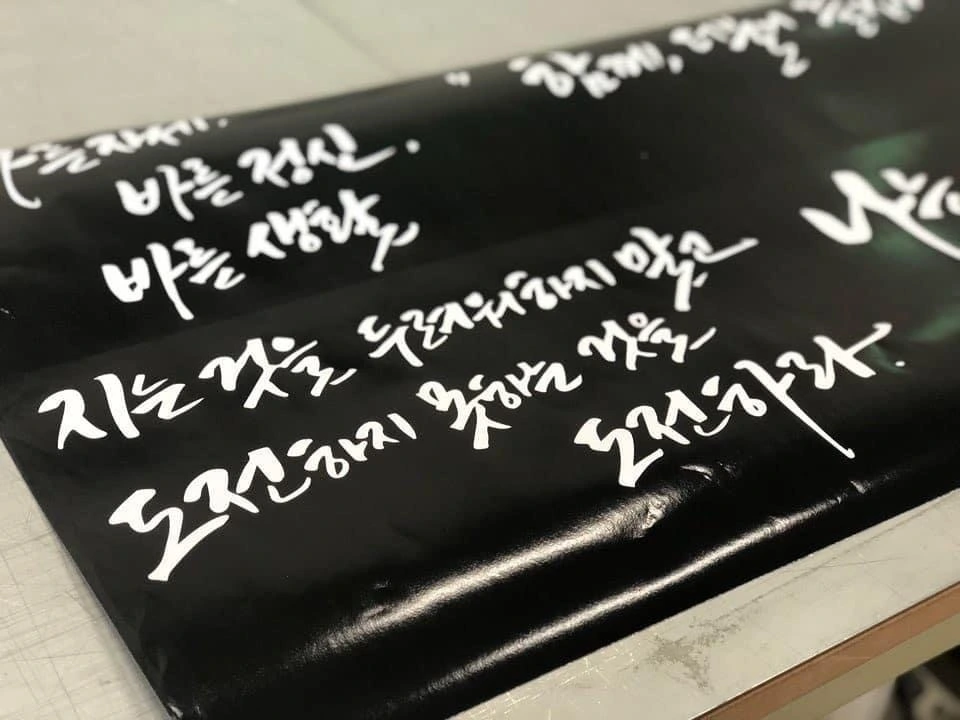 " 함께,
바른자세.
바른 정신.
바른 생활
지는 것을 두려워하지 말고
도전하지 못하는 것을
도전하라.